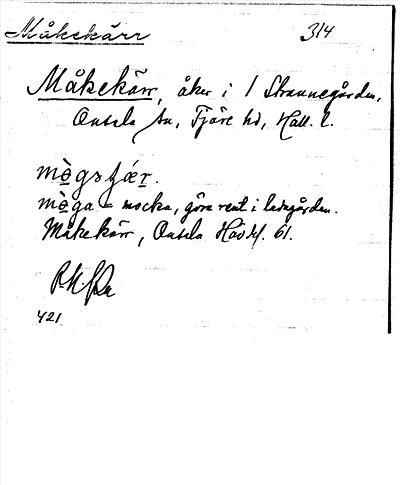 Måkekärr 314
Måkekärr, åker i 1 Strannegården,
Onsala sn, Fjäre hd, Hall. l.
mògsɟær.
mòga = mocka, göra rent i ladugården.
Måkekärr, Onsala HävM. 61.
421